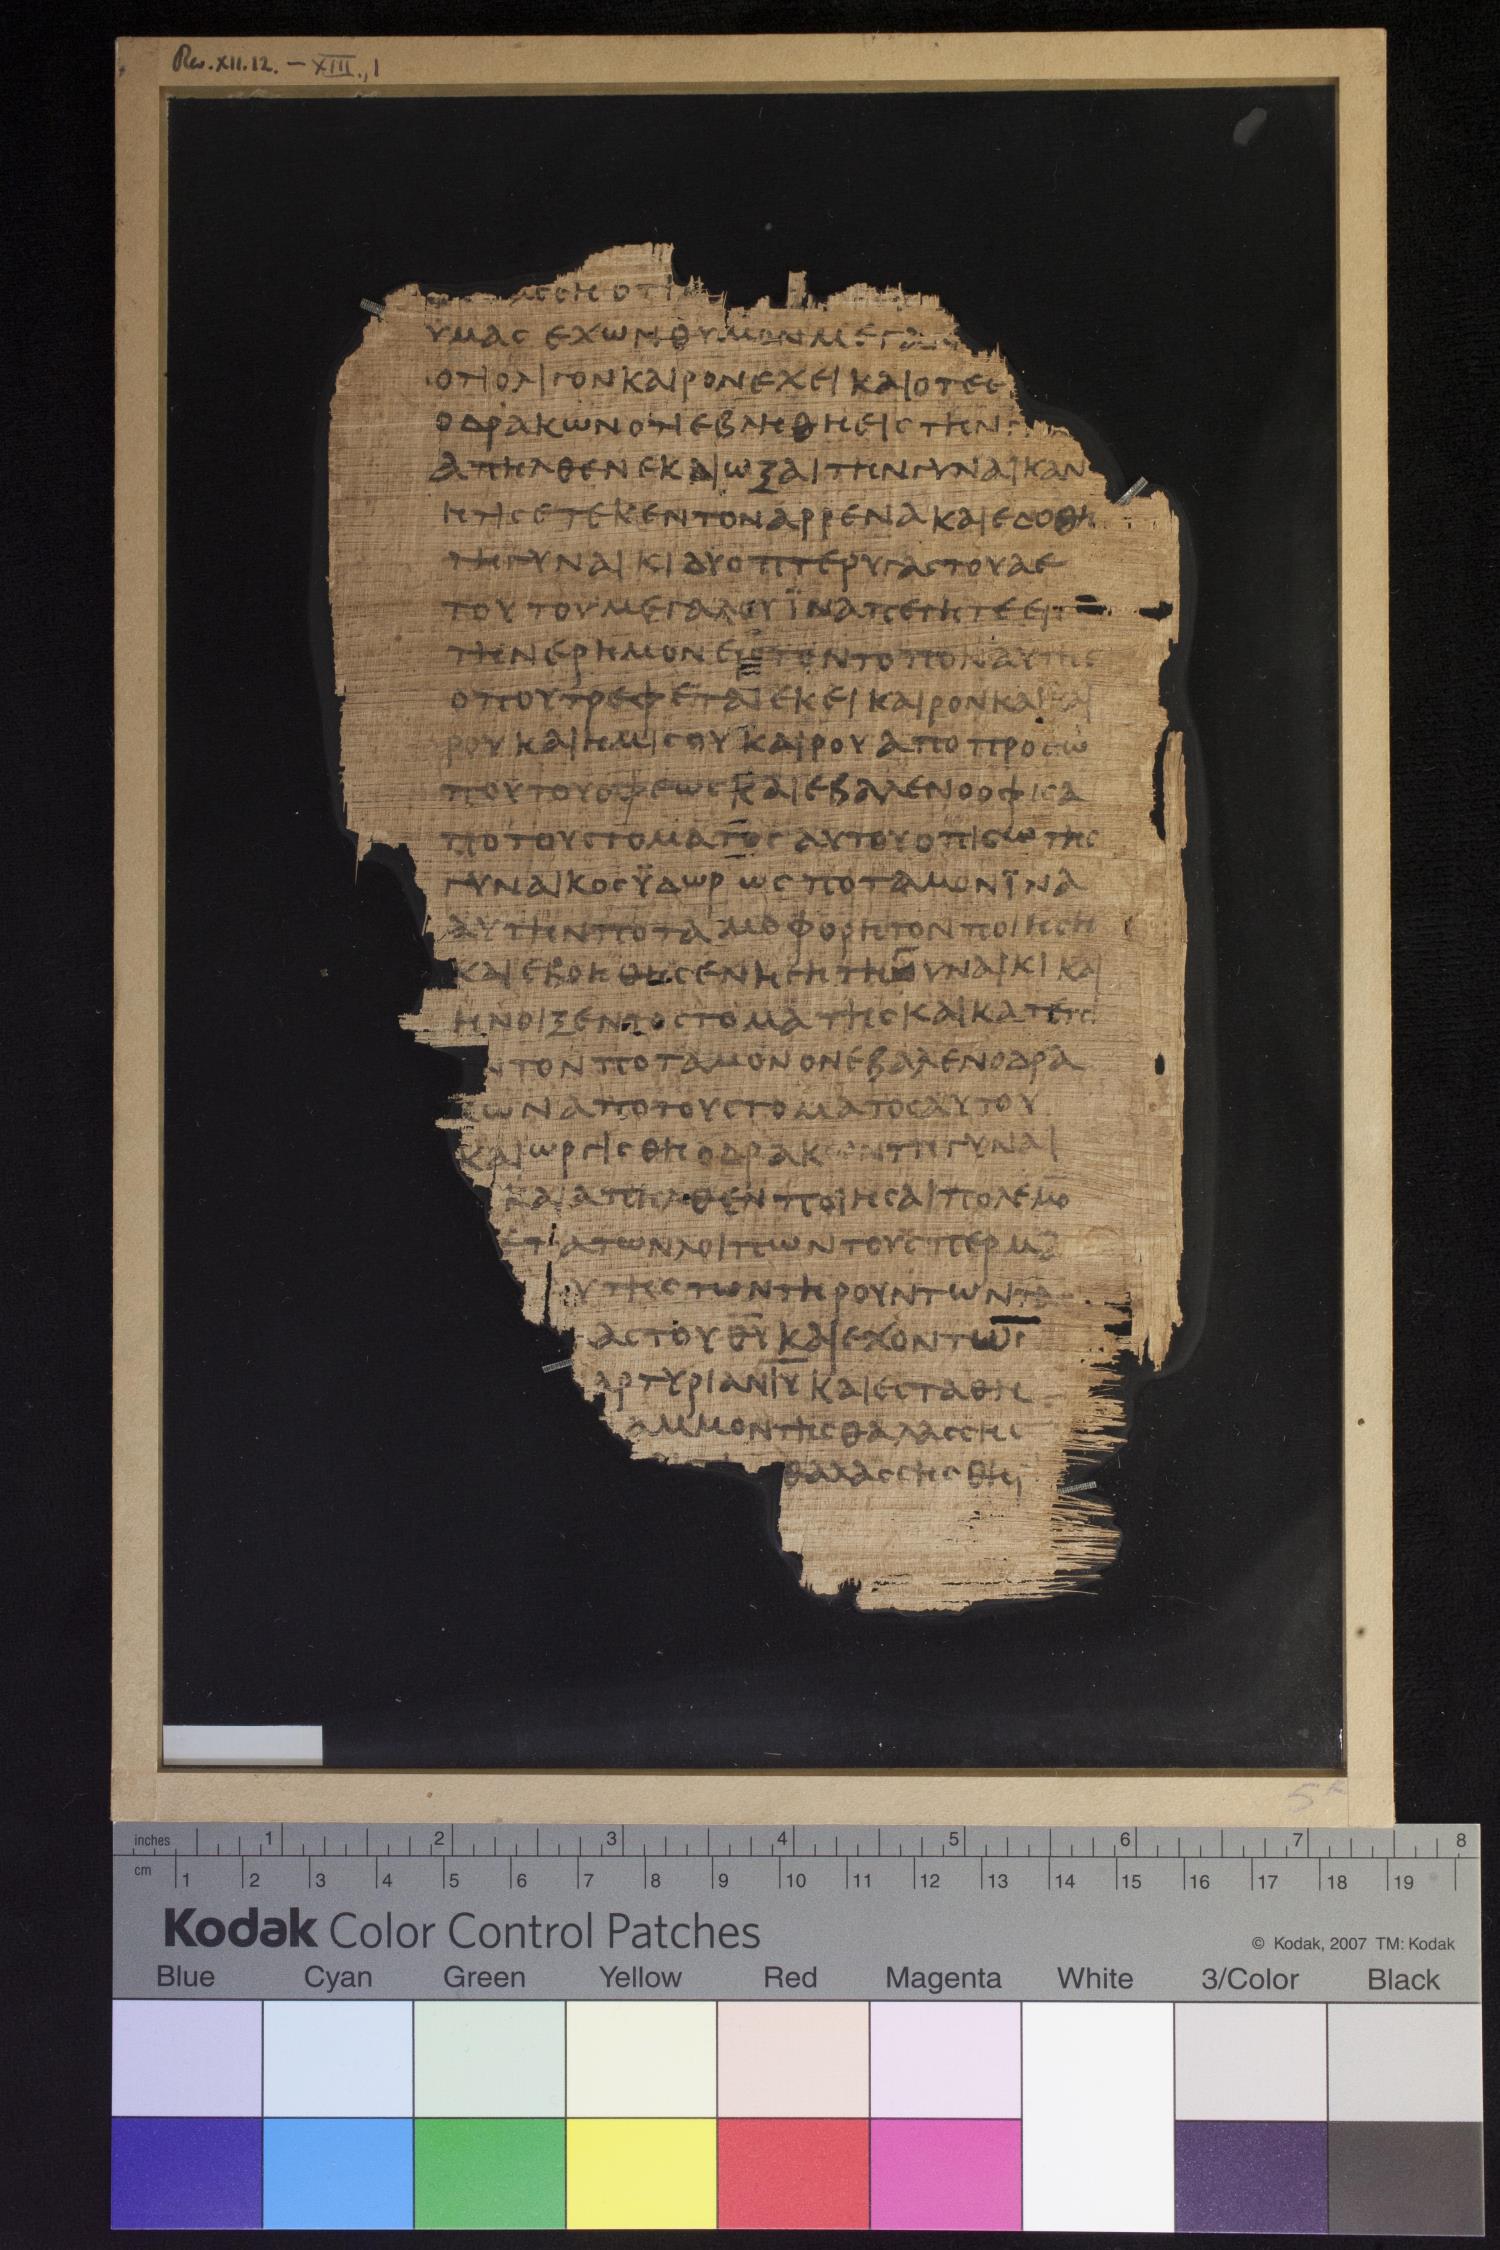 Rev. XII.12. – XIII., 1
ϹϹΗ ΟΤΙ
ΥΜΑϹ ΕΧΩΝ ΘΥΜΟΝ ΜΕΓΑ
ΟΤΙ ΟΛΙΓΟΝ ΚΑΙΡΟΝ ΕΧΕΙ ΚΑΙ ΟΤΕ Ε
Ο ΔΡΑΚΩΝ ΟΤΙ ΕΒΛΗΘΗ ΕΙϹ ΤΗΝ
ΑΠΗΛΘΕΝ ΕΚΔΙΩΞΑΙ ΤΗΝ ΓΥΝΑΙΚΑΝ
ΗΤΙϹ ΕΤΕΚΕΝ ΤΟΝ ΑΡΡΕΝΑ ΚΑΙ ΕΔΟΘΗ
ΤΗ ΓΥΝΑΙΚΙ ΔΥΟ ΠΤΕΡΥΓΑϹ ΤΟΥ ΑΕ
ΤΟΥ ΤΟΥ ΜΕΓΑΛΟΥ ΪΝΑ ΠΕΤΗΤΕ ΕΙϹ
ΤΗΝ ΕΡΗΜΟΝ ΕΙϹ ΤΟΝ ΤΟΠΟΝ ΑΥΤΗϹ
ΟΠΟΥ ΤΡΕΦΕΤΑΙ ΕΚΕΙ ΚΑΙΡΟΝ ΚΑΙ ΚΑΙ
ΡΟΥ ΚΑΙ ΗΜΙϹΟΥ ΚΑΙΡΟΥ ΑΠΟ ΠΡΟϹΩ
ΠΟΥ ΤΟΥ ΟΦΕΩϹ ΚΑΙ ΕΒΑΛΕΝ Ο ΟΦΙϹ Α
ΠΟ ΤΟΥ ϹΤΟΜΑΤΟϹ ΑΥΤΟΥ ΟΠΙϹΩ ΤΗϹ
ΓΥΝΑΙΚΟϹ ΫΔΩΡ ΩϹ ΠΟΤΑΜΟΝ ΪΝΑ
ΑΥΤΗΝ ΠΟΤΑΜΟΦΟΡΗΤΟΝ ΠΟΙΗϹΗ
ΚΑΙ ΕΒΟΗΘΗϹΕΝ Η ΓΗ ΤΗ ΓΥΝΑΙΚΙ ΚΑΙ
ΗΝΟΙΞΕΝ ΤΟ ϹΤΟΜΑ ΤΗϹ ΚΑΙ ΚΑΤΕΠΙ
Ν ΤΟΝ ΠΟΤΑΜΟΝ ΟΝ ΕΒΑΛΕΝ Ο ΔΡΑ
ΚΩΝ ΑΠΟ ΤΟΥ ϹΤΟΜΑΤΟϹ ΑΥΤΟΥ
ΚΑΙ ΩΡΓΙϹΘΗ Ο ΔΡΑΚΩΝ ΤΗ ΓΥΝΑΙ
ΚΑΙ ΑΠΗΛΘΕΝ ΠΟΙΗϹΑΙ ΠΟΛΕΜΟ
ΕΤΑ ΤΩΝ ΛΟΙΠΩΝ ΤΟΥ ϹΠΕΡΜΑ
ΥΤΗϹ ΤΩΝ ΤΗΡΟΥΝΤΩΝ ΤΑ
ΑϹ ΤΟΥ Θ̅Υ̅ ΚΑΙ ΕΧΟΝΤΩ
ΑΡΤΥΡΙΑΝ Ι̅Υ̅ ΚΑΙ ΕϹΤΑΘΗ
ΑΜΜΟΝ ΤΗϹ ΘΑΛΑϹϹΗϹ
ΘΑΛΑϹϹΗϹ ΘΗ
5
inches 1 2 3 4 5 6 7 8
cm 1 2 3 4 5 6 7 8 9 10 11 12 13 14 15 16 17 18 19
Kodak Color Control Patches
© Kodak, 2007 TM: Kodak
Blue Cyan Green Yellow Red Magenta White 3/Color Black